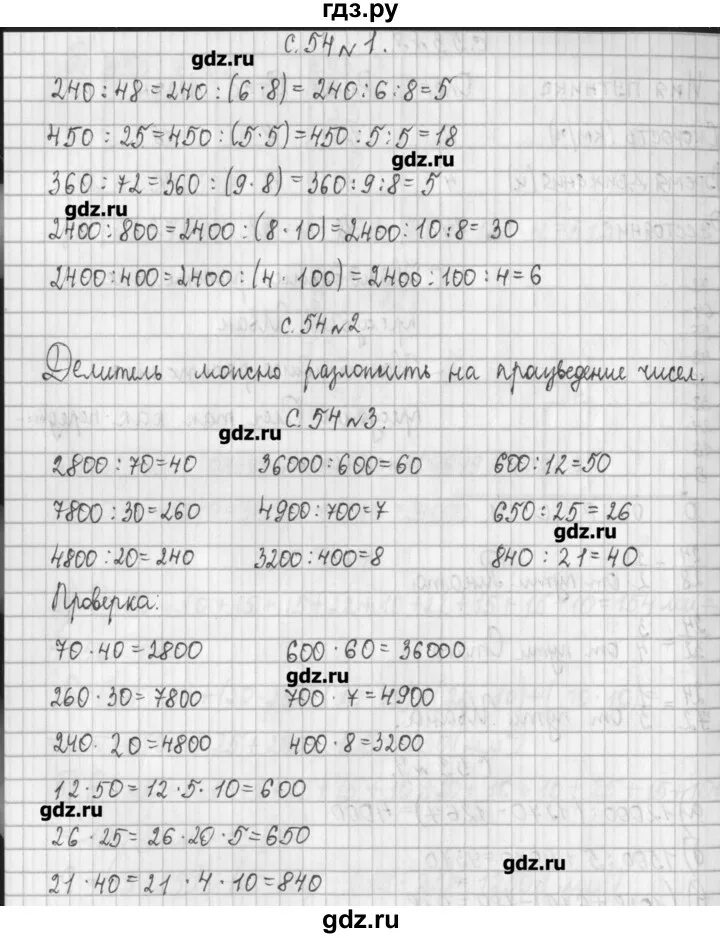 гдз.ру
с. 54 № 1.
gdz.ru
240 : 48 = 240 : (6 · 8) = 240 : 6 : 8 = 5
450 : 25 = 450 : (5 · 5) = 450 : 5 : 5 = 18
gdz.ru
360 : 72 = 360 : (9 · 8) = 360 : 9 : 8 = 5
gdz.ru
2400 : 800 = 2400 : (8 · 10) = 2400 : 10 : 8 = 30
2400 : 400 = 2400 : (4 · 100) = 2400 : 100 : 4 = 6
с. 54 № 2
Делитель можно разложить на произведение чисел.
с. 54 № 3.
gdz.ru
2800 : 70 = 40 36000 : 600 = 60 600 : 12 = 50
7800 : 30 = 260 4900 : 700 = 7 650 : 25 = 26
gdz.ru
4800 : 20 = 240 3200 : 400 = 8 840 : 21 = 40
Проверка:
70 · 40 = 2800 600 · 60 = 36000
gdz.ru
260 · 30 = 7800 700 · 7 = 4900
240 · 20 = 4800 400 · 8 = 3200
12 · 50 = 12 · 5 · 10 = 600
gdz.ru
26 · 25 = 26 · 20 · 5 = 650
gdz.ru
21 · 40 = 21 · 4 · 10 = 840
gdz.ru